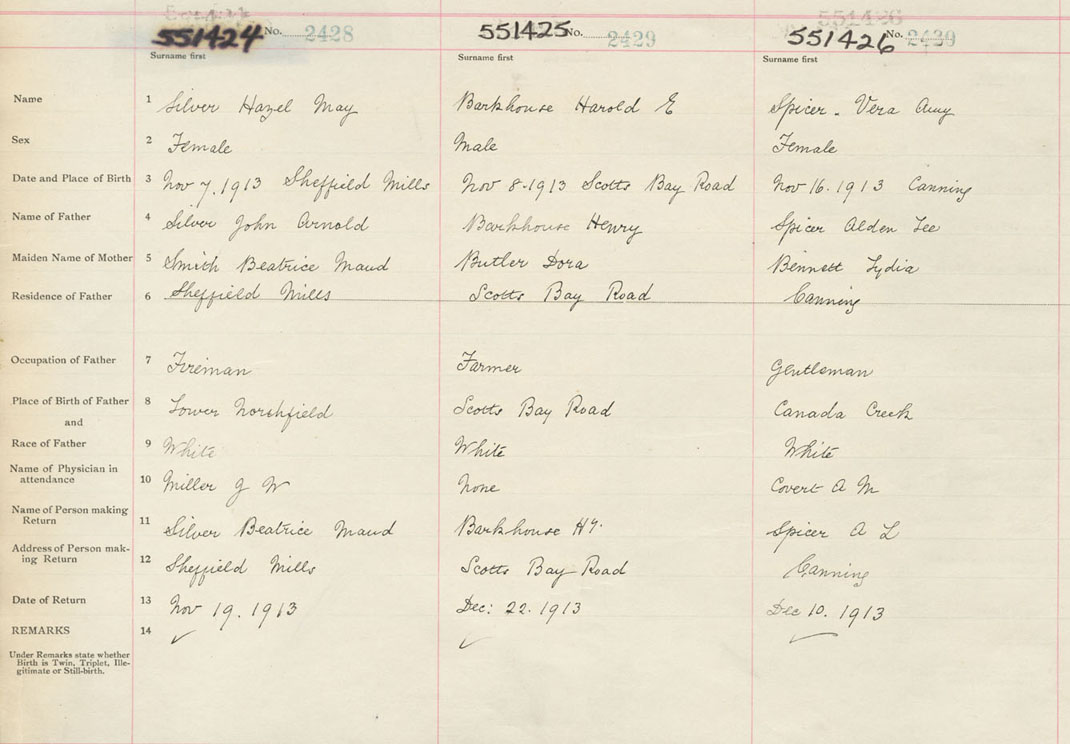 551424 No. 2428 551425 No. 2429 551426 No. 2430
Surname first Surname first Surname first
Name 1 Silver Hazel May Barkhouse Harold E Spicer - Vera Amy
Sex 2 Female Male Female
Date and Place of Birth 3 Nov 7, 1913 Sheffield Mills Nov 8-1913 Scotts Bay Road Nov 16. 1913 Canning
Name of Father 4 Silver John Arnold Barkhouse Henry Spicer Alden Lee
Maiden Name of Mother 5 Smith Beatrice Maud Butler Dora Bennett Lydia
Residence of Father 6 Sheffield Mills Scotts Bay Road Canning
Occupation of Father 7 Fireman Farmer Gentleman
Place of Birth of Father 8 Lower Northfield Scotts Bay Road Canada Creek
and
Race of Father 9 White White White
Name of Physician in
attendance 10 Miller J W None Covert A M
Name of Person making
Return 11 Silver Beatrice Maud Barkhouse Hy. Spicer A L
Address of Person mak-
ing Return 12 Sheffield Mills Scotts Bay Road Canning
Date of Return 13 Nov 19. 1913 Dec: 22. 1913 Dec 10. 1913
REMARKS 14 ✓ ✓ ✓
Under Remarks state whether
Birth is Twin, Triplet, Ille-
gitimate or Still-birth.